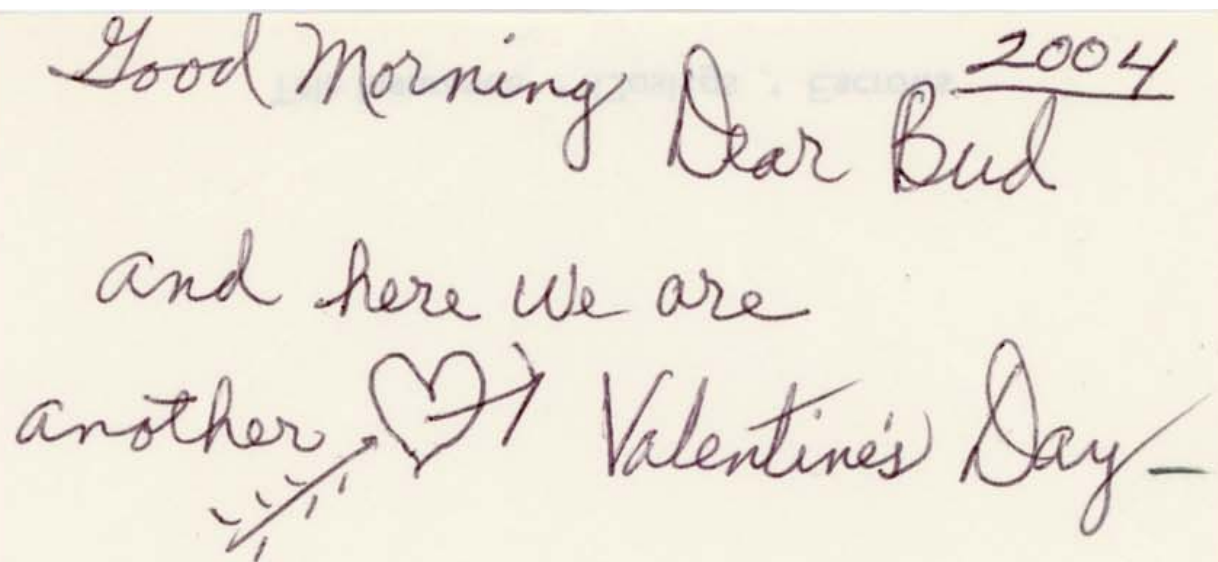 Good Morning 2004
Dear Bud
and here we are
another Valentine's Day –